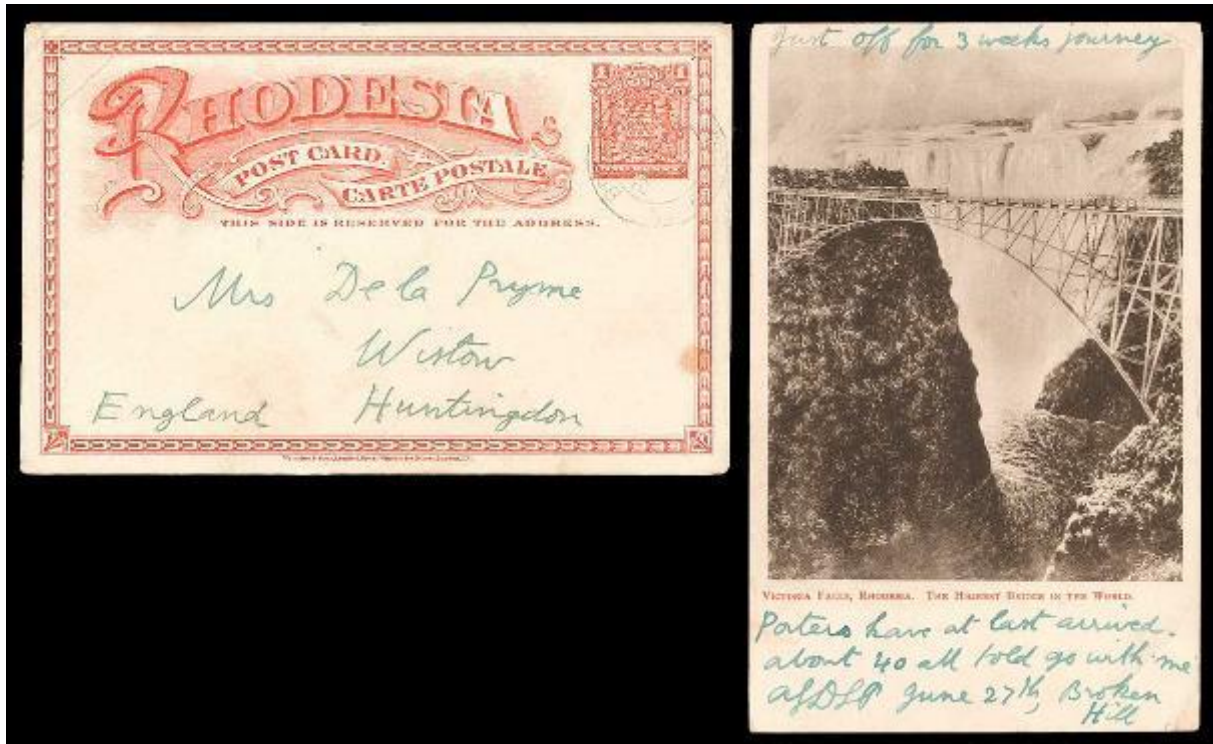 RHODESIA
POST CARD.
CARTE POSTALE
THIS SIDE IS RESERVED FOR THE ADDRESS.
1 1
Mrs De la Pryme
Wistow
England Huntingdon
Just off for 3 weeks journey
VICTORIA FALLS, RHODESIA. THE HIGHEST BRIDGE IN THE WORLD.
Porters have at last arrived.
about 40 all told go with me
June 27th, Broken
Hill